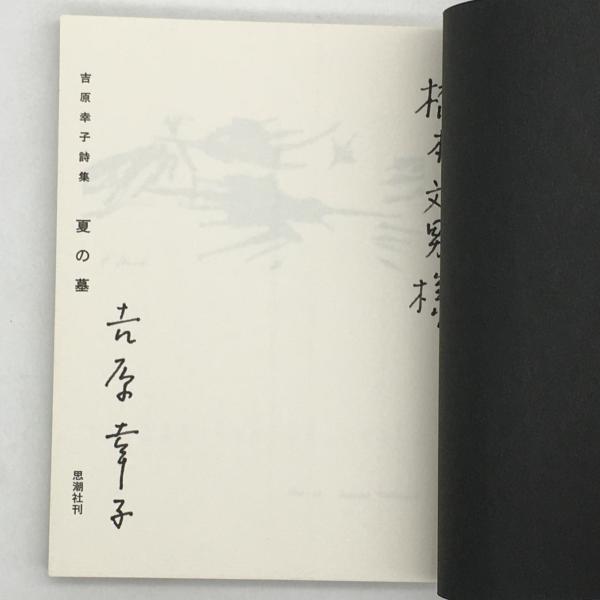 橋本文男様
吉原幸子詩集 夏の墓
吉原幸子
思潮社刊